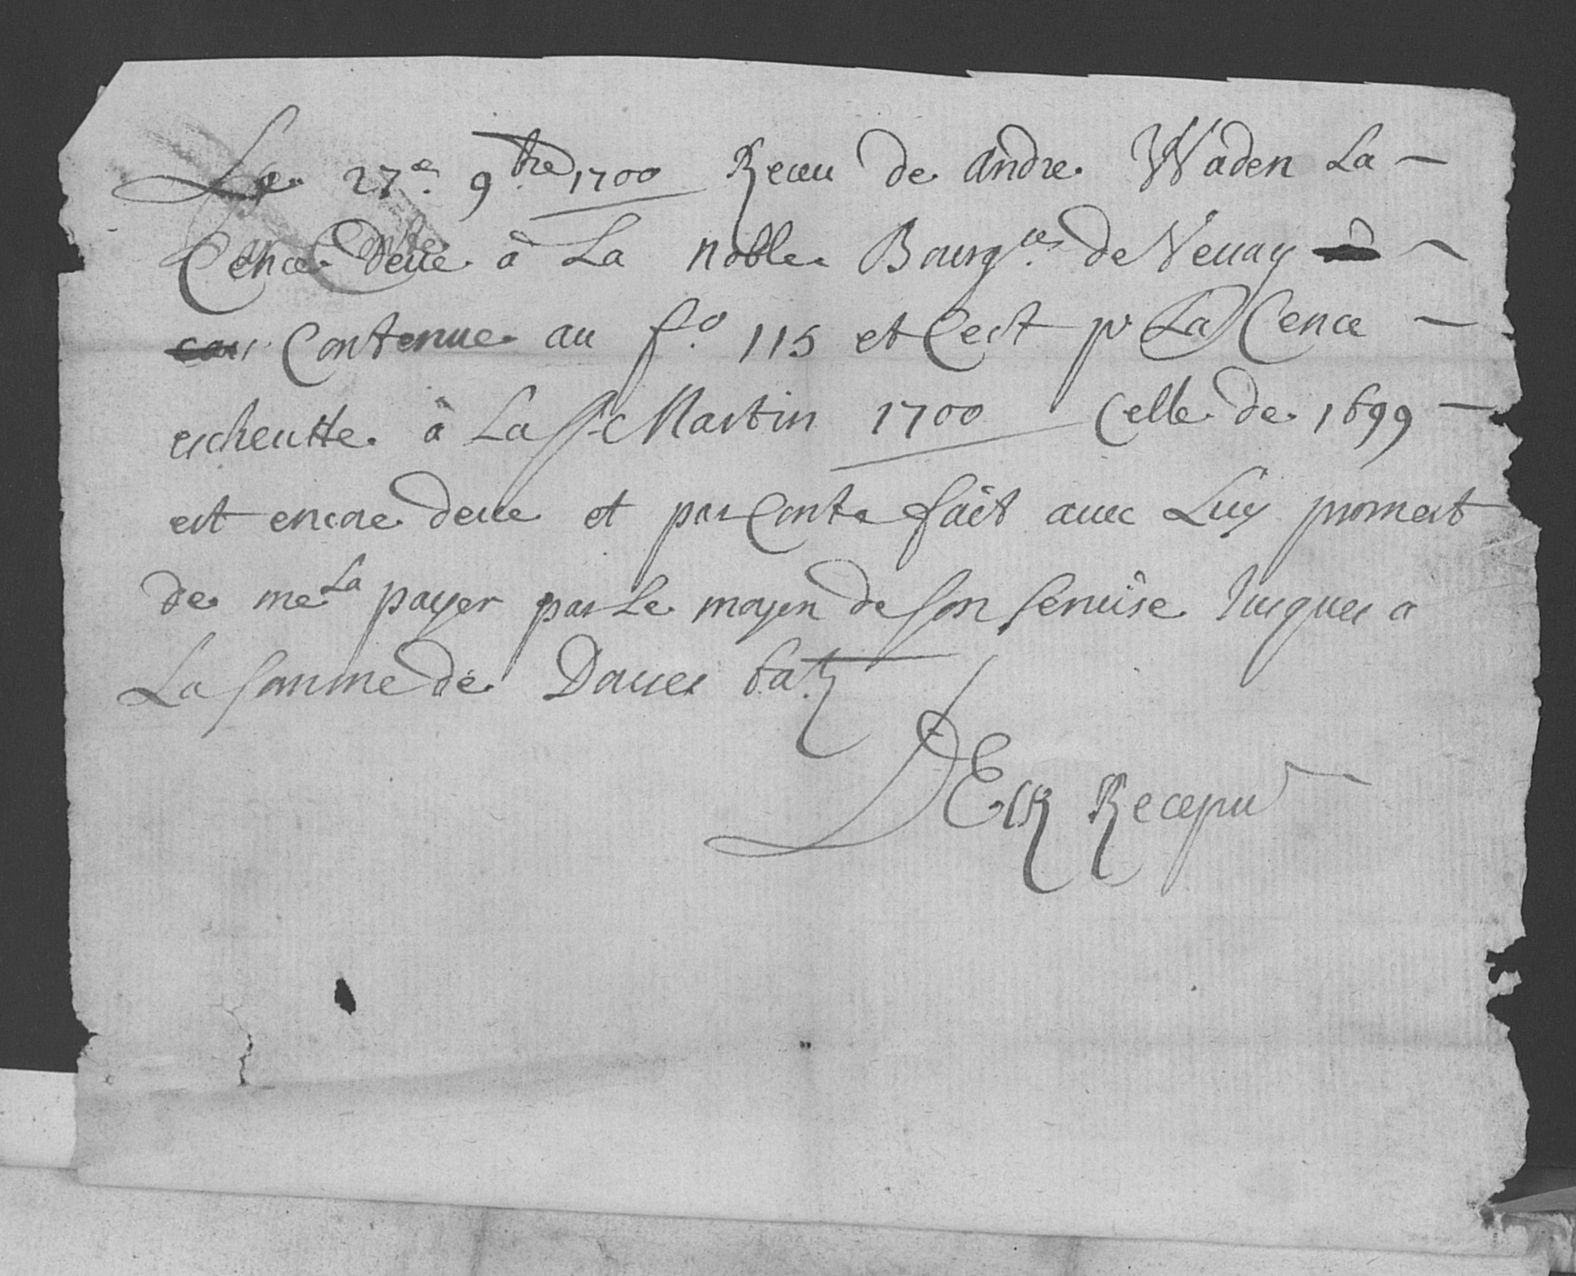 Le 27e. 9bre 1700 Receu de Andre Waden La
Cence Deue à La noble Bourg.ie de Veuay
Contenue au f.o 115 et Cest pr La Cence
escheutte à La St Martin 1700 Celle de 1699
est encore deue et par Conte fait auec Luy promest
de me La payer par Le moyen de son seruise Jusques a
La somme de Douse batz
DEck Recepur